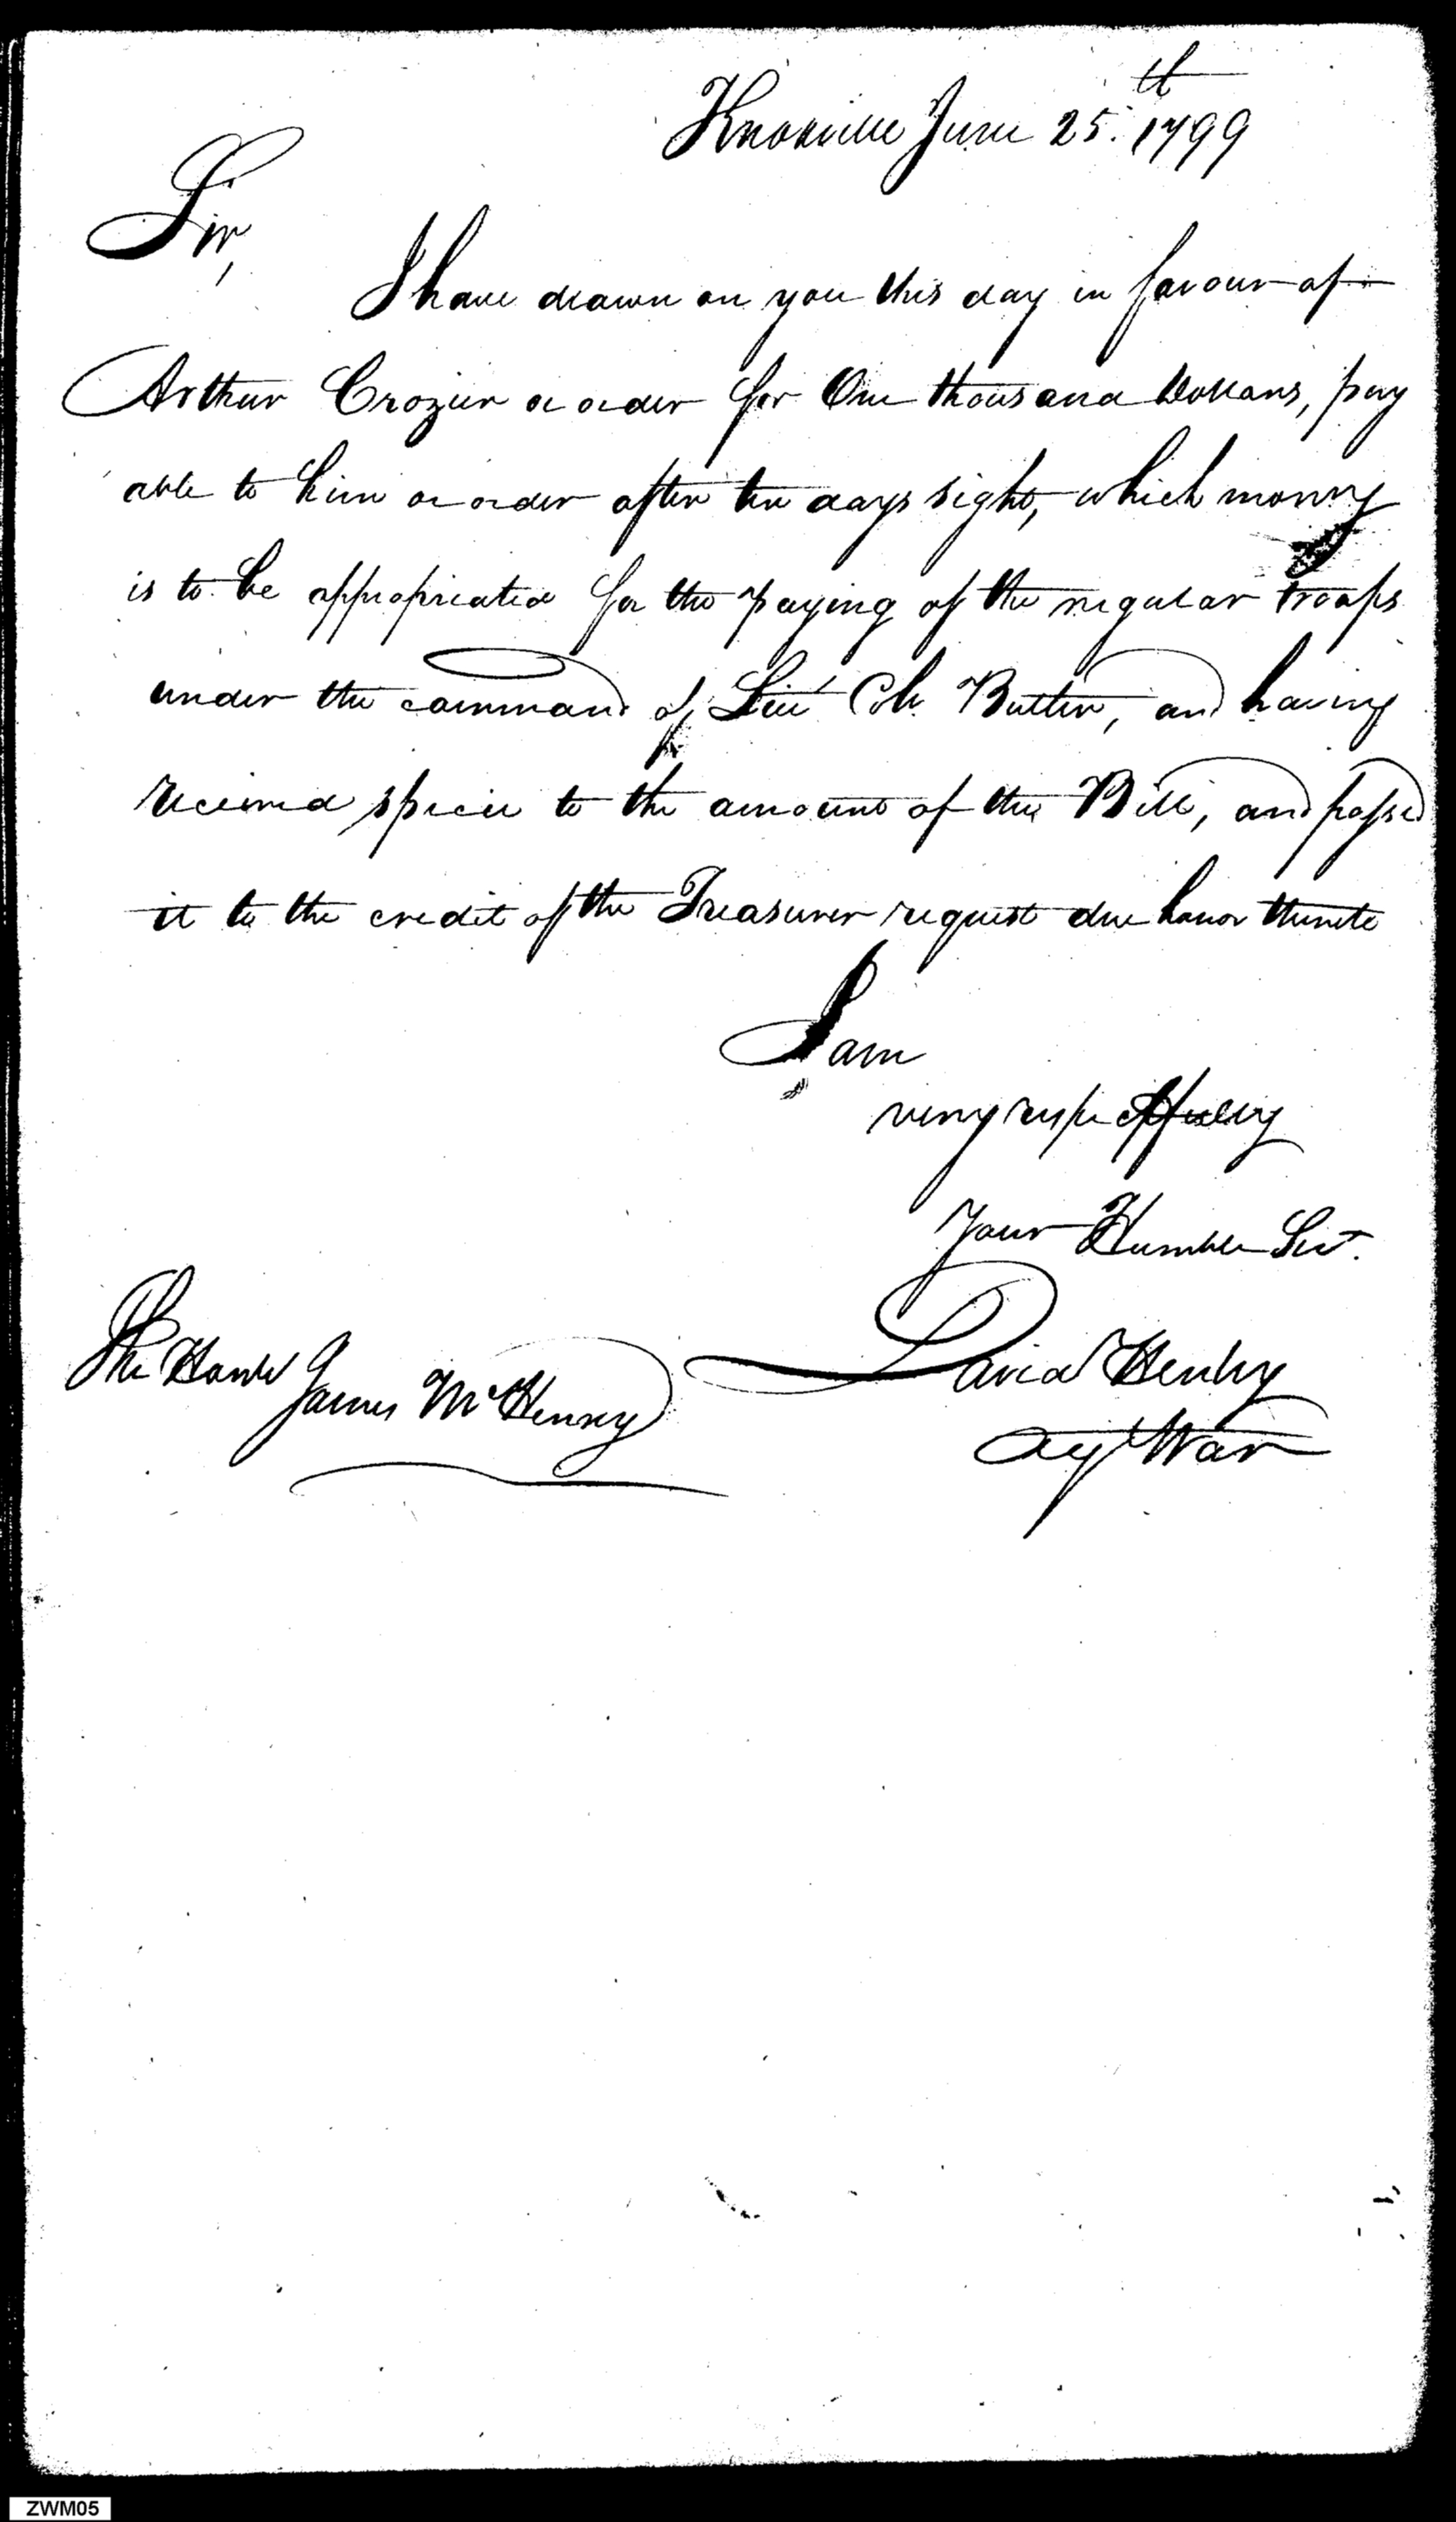 Knoxville June 25.th 1799
Sir,
I have drawn on you this day in favour of
Arthur Crozier or order for One thousand Dollars, pay
able to him or order after ten days sight, which money
is to be appropriated for the paying of the regular troops
under the command of Lieut Col. Butler, and having
received specie to the amount of the Bill, and passed
it to the credit of the Treasurer request due honor thereto
I am
very respectfully
Your Humble Servt.
David Henley
Agt War
The Honble James McHenry
ZWM05